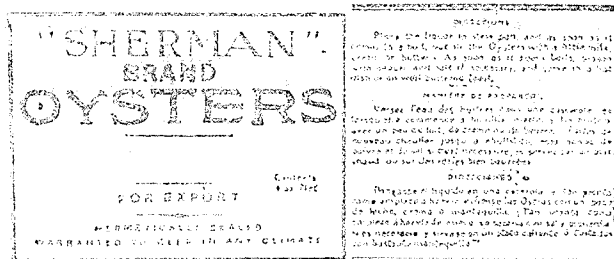 "SHERMAN"
BRAND
OYSTERS
Contents
FOR EXPORT
HERMETICALLY SEALED
WARRANTED TO KEEP IN ANY CLIMATE
DIRECTIONS
Place the liquor in stew pan, and as soon as it
comes to a boil, put in the Oysters with a little milk,
cream or butter. As soon as it again boils, season
with pepper and salt if necessary, and serve in a hot
dish or on well buttered toast.
Versez l'eau des huitres dans une casserole, et
avec un peu de lait, de crème ou de beurre. Faites de
nouveau chauffer jusqu'a ebullition,
poivre et de sel si c'est necessaire, et servez sur un plat
chaud ou sur des roties bien beurrées
DIRECCIONES
Pongase el liquido en una cacerola y tan pronto
como empiece a hervir echense las Ostras con un poco
de leche, crema o mantequilla. Tan pronto como
empiece a hervir de nuevo, sazonese con sal y pimienta
si es necesario y sirvase en un plato caliente o tostadas
con bastante mantequilla